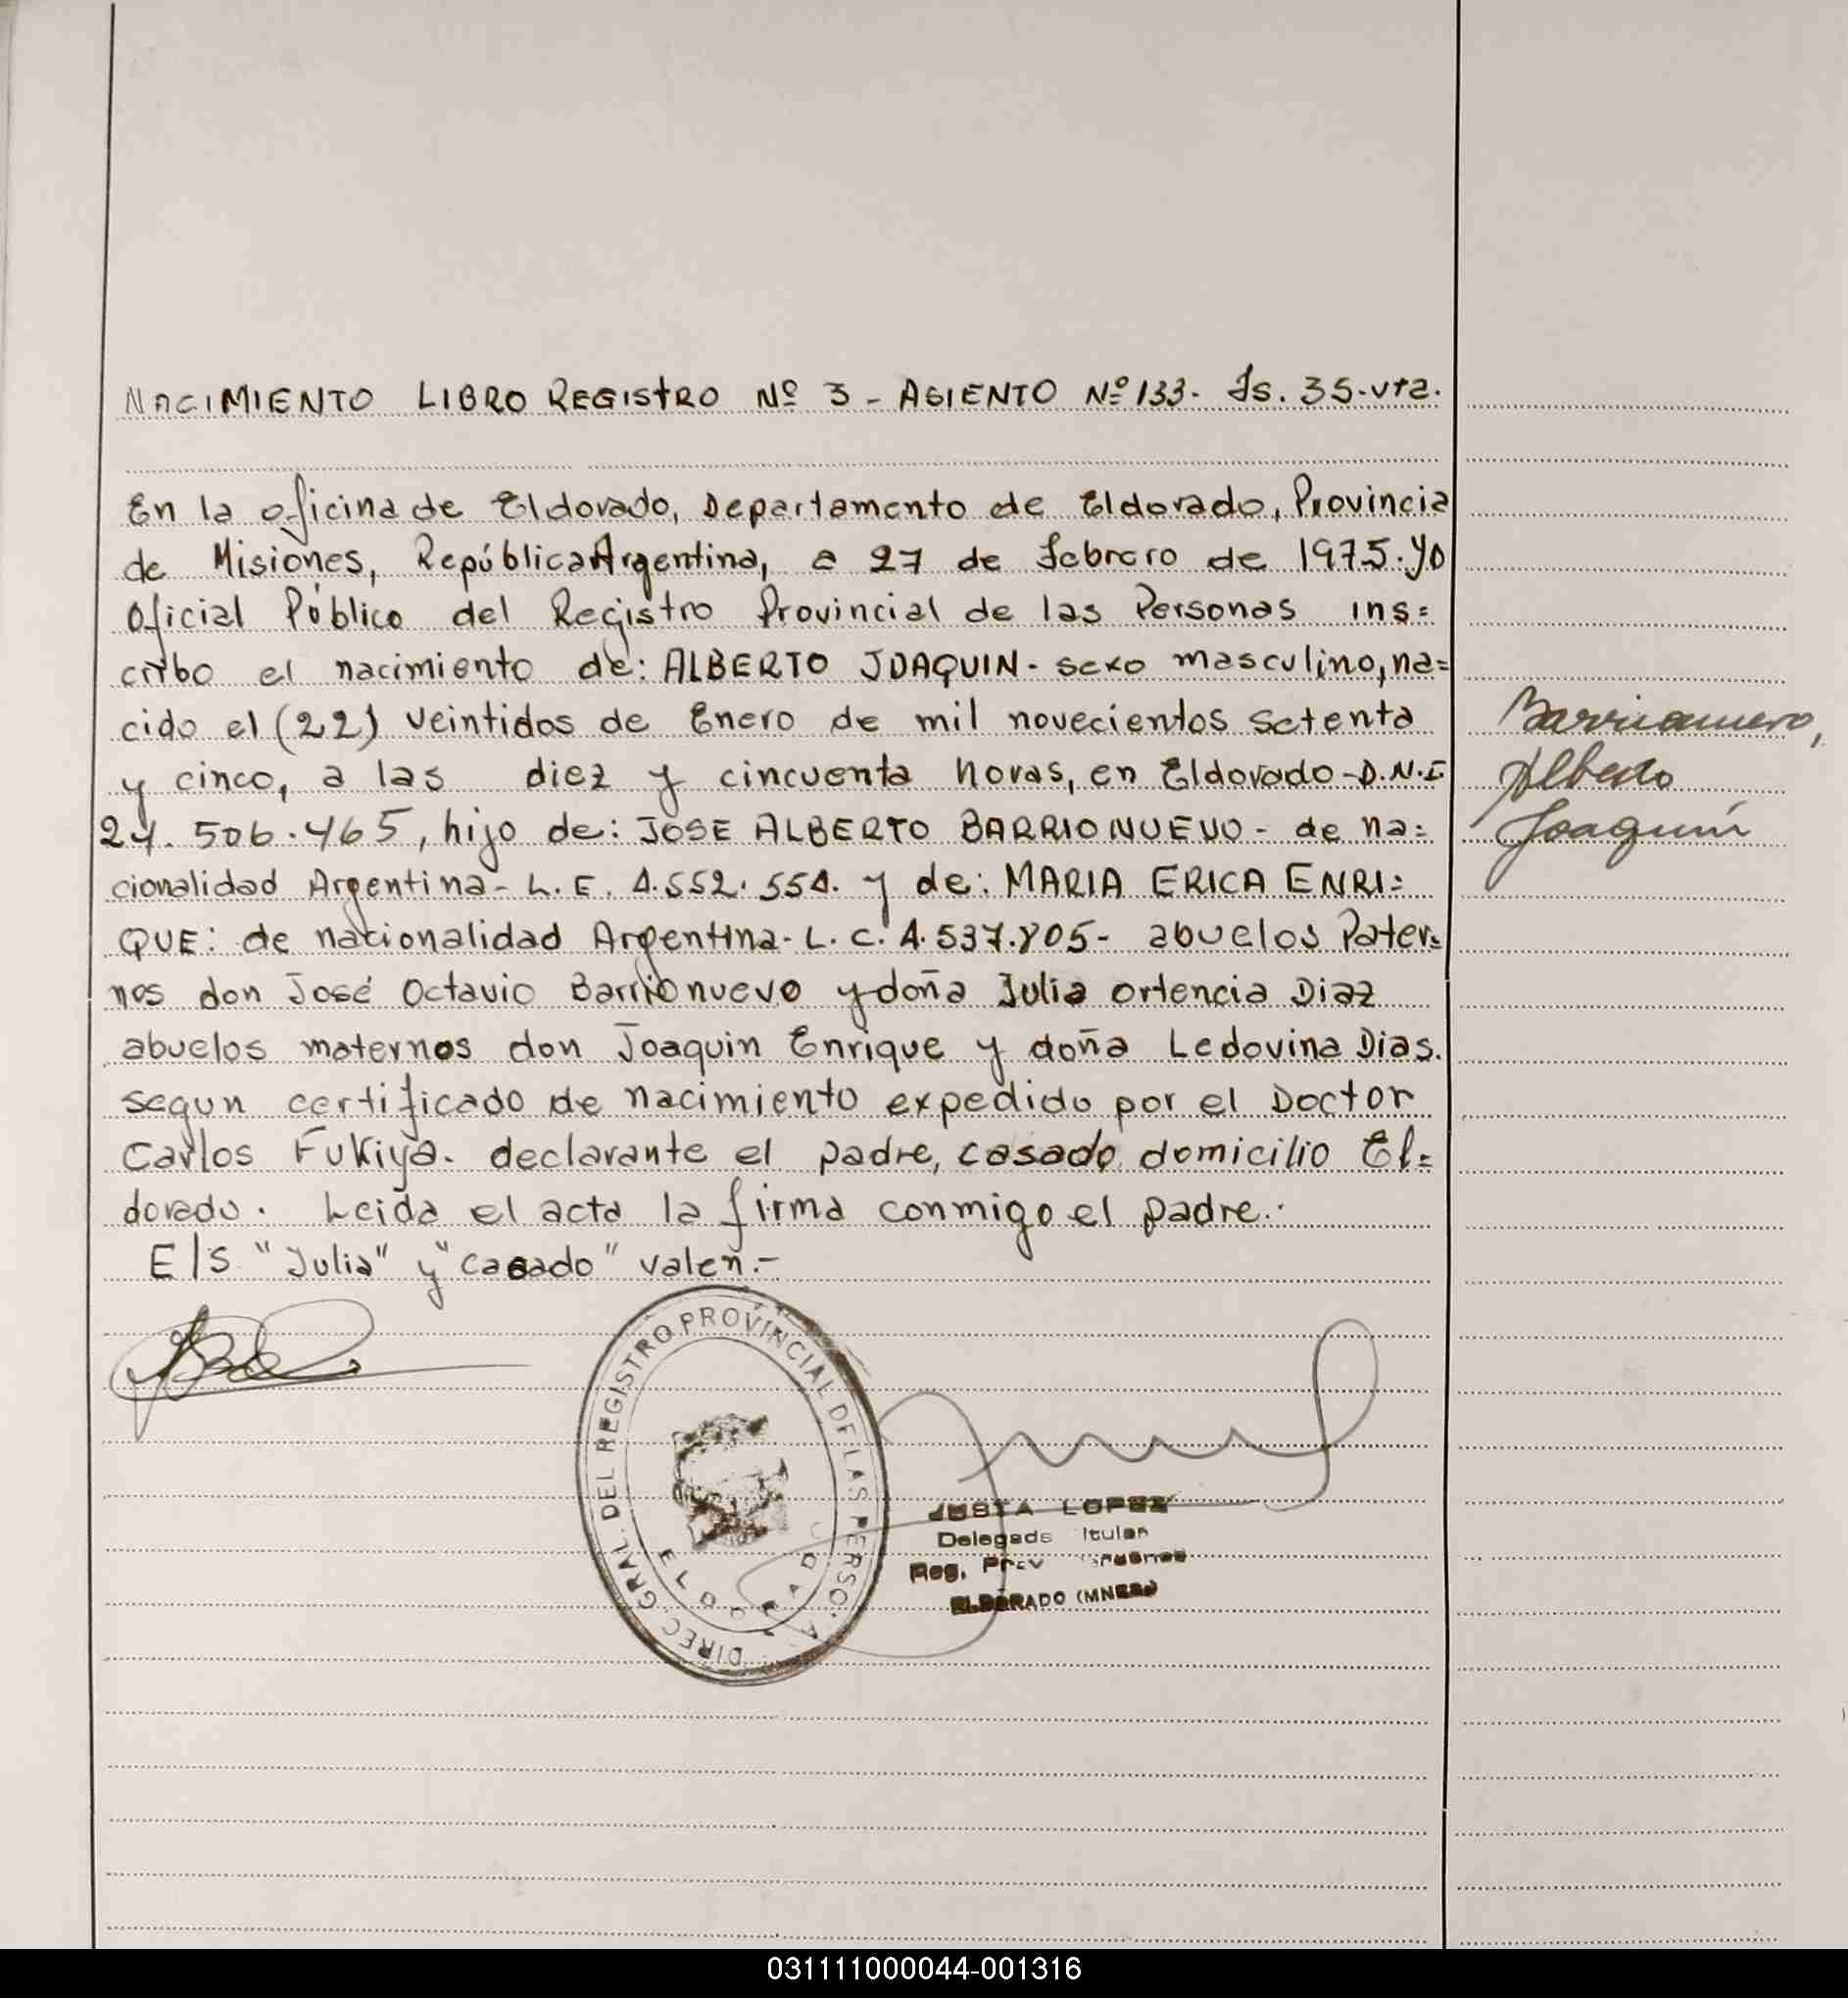 NACIMIENTO LIBRO REGISTRO Nº 3 - ASIENTO Nº 133. Fs. 35.vta.
En la oficina de Eldorado, Departamento de Eldorado, Provincia
de Misiones, República Argentina, a 27 de Febrero de 1975. Yo
Oficial Público del Registro Provincial de las Personas ins=
cribo el nacimiento de: ALBERTO JOAQUIN - sexo masculino, na=
cido el (22) veintidos de Enero de mil novecientos setenta
y cinco, a las diez y cincuenta horas, en Eldorado - D.N.I
24.506.465, hijo de: JOSE ALBERTO BARRIONUEVO - de na=
cionalidad Argentina - L.E. 4.552.554. y de: MARIA ERICA ENRI=
QUE: de nacionalidad Argentina - L.C. 4.537.805 - abuelos Pater=
nos don José Octavio Barrionuevo y doña Julia Ortencia Diaz
abuelos maternos don Joaquin Enrique y doña Ledovina Dias.
segun certificado de nacimiento expedido por el Doctor
Carlos Fukiya. declarante el padre, casado, domicilio El=
dorado. Leida el acta la firma conmigo el padre.
E/S "Julia" y "casado" valen.-
Barrionuevo,
Alberto
Joaquín
DIREC. GRAL. DEL REGISTRO PROVINCIAL DE LAS PERSO
ELDORAD
JUSTA LOPEZ
Reg.
ELDORADO (MNES.)
031111000044-001316